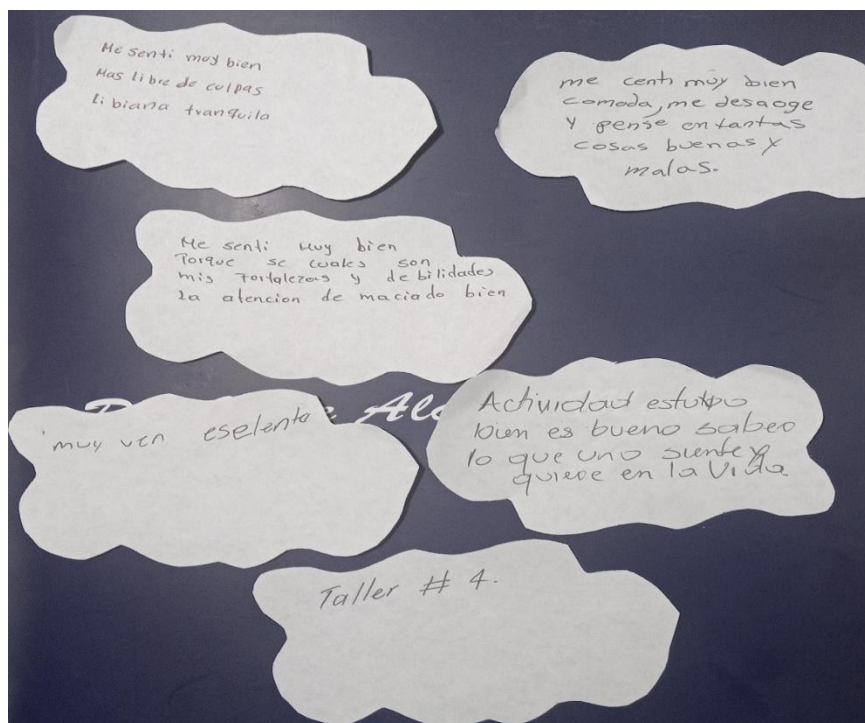 Me senti muy bien
Mas libre de culpas
libiana tranquila
me centi muy bien
comoda, me desaoge
y pense en tantas
cosas buenas y
malas.
Me senti muy bien
Porque se cuales son
mis Fortalezas y debilidades
La atencion demaciado bien
muy ven eselente
Actividad estubo
bien es bueno saber
lo que uno siente y
quiere en la Vida
Taller # 4.